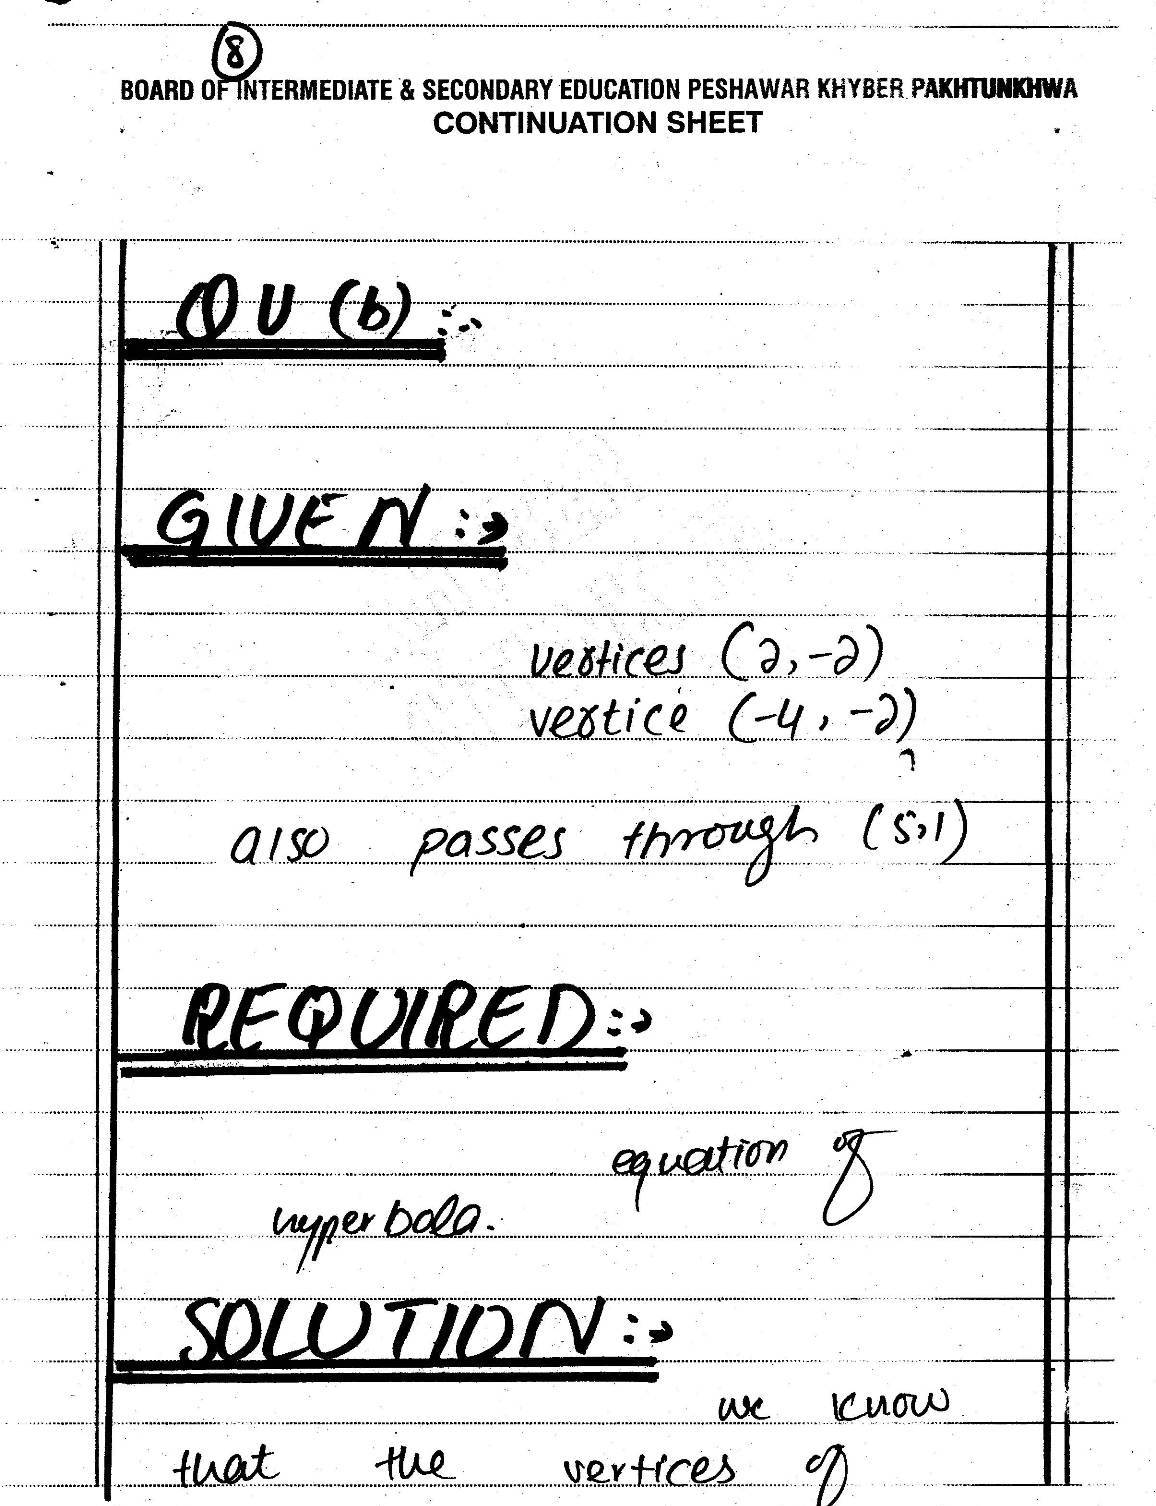 8
BOARD OF INTERMEDIATE & SECONDARY EDUCATION PESHAWAR KHYBER PAKHTUNKHWA
CONTINUATION SHEET
QU (b) :-
GIVEN :→
vertices (2,-2)
vertice (-4, -2)
also passes through (5,1)
REQUIRED :→
equation of
hyperbola.
SOLUTION :→
we know
that the vertices of